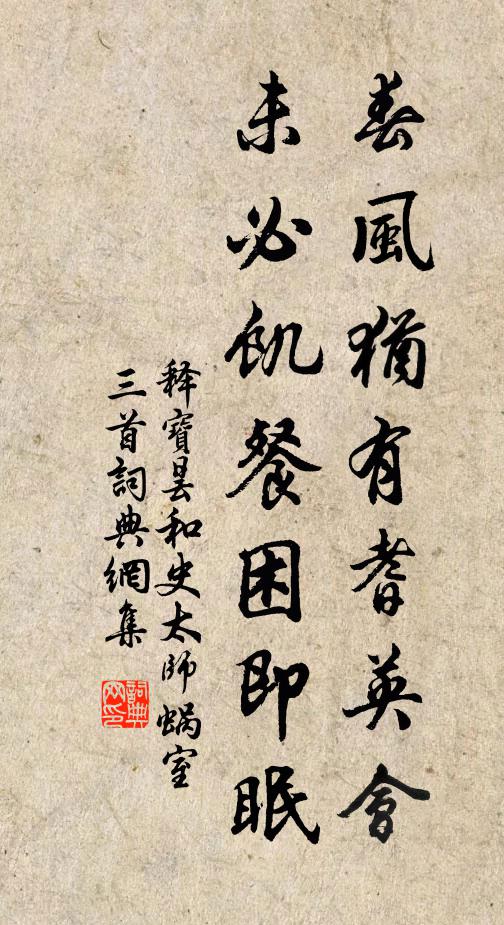 春風猶有耆英會
未必飢餐困即眠
释寶昙和史太師蝸室
三首詞典網集
詞典網印